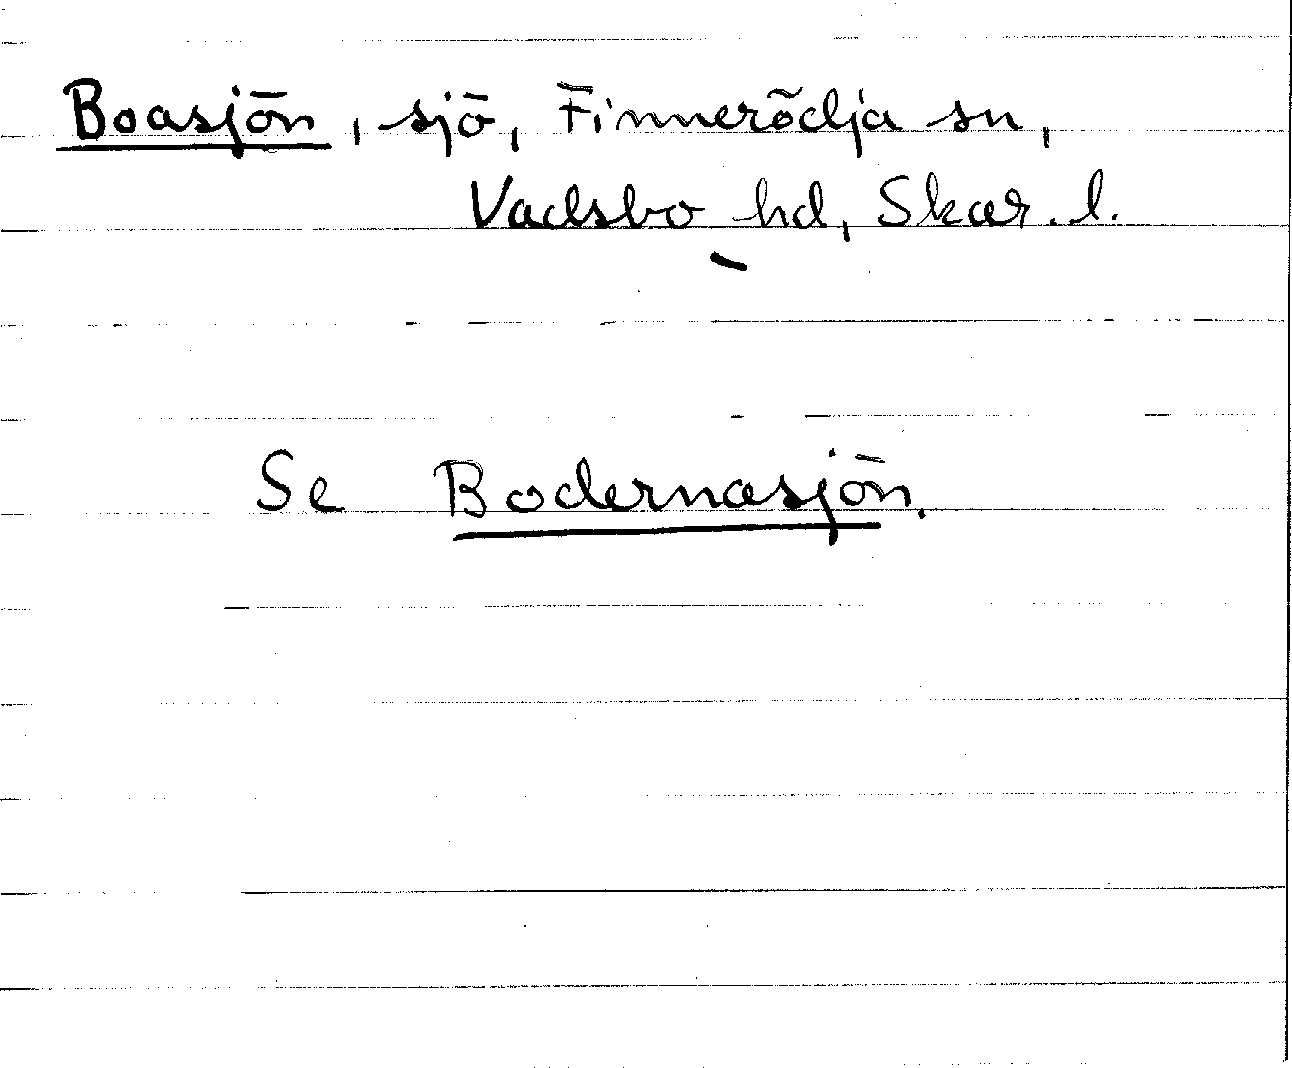 Boasjön, sjö, Finnerödja sn,
Vadsbo hd, Skar. l.
Se Bodernasjön.